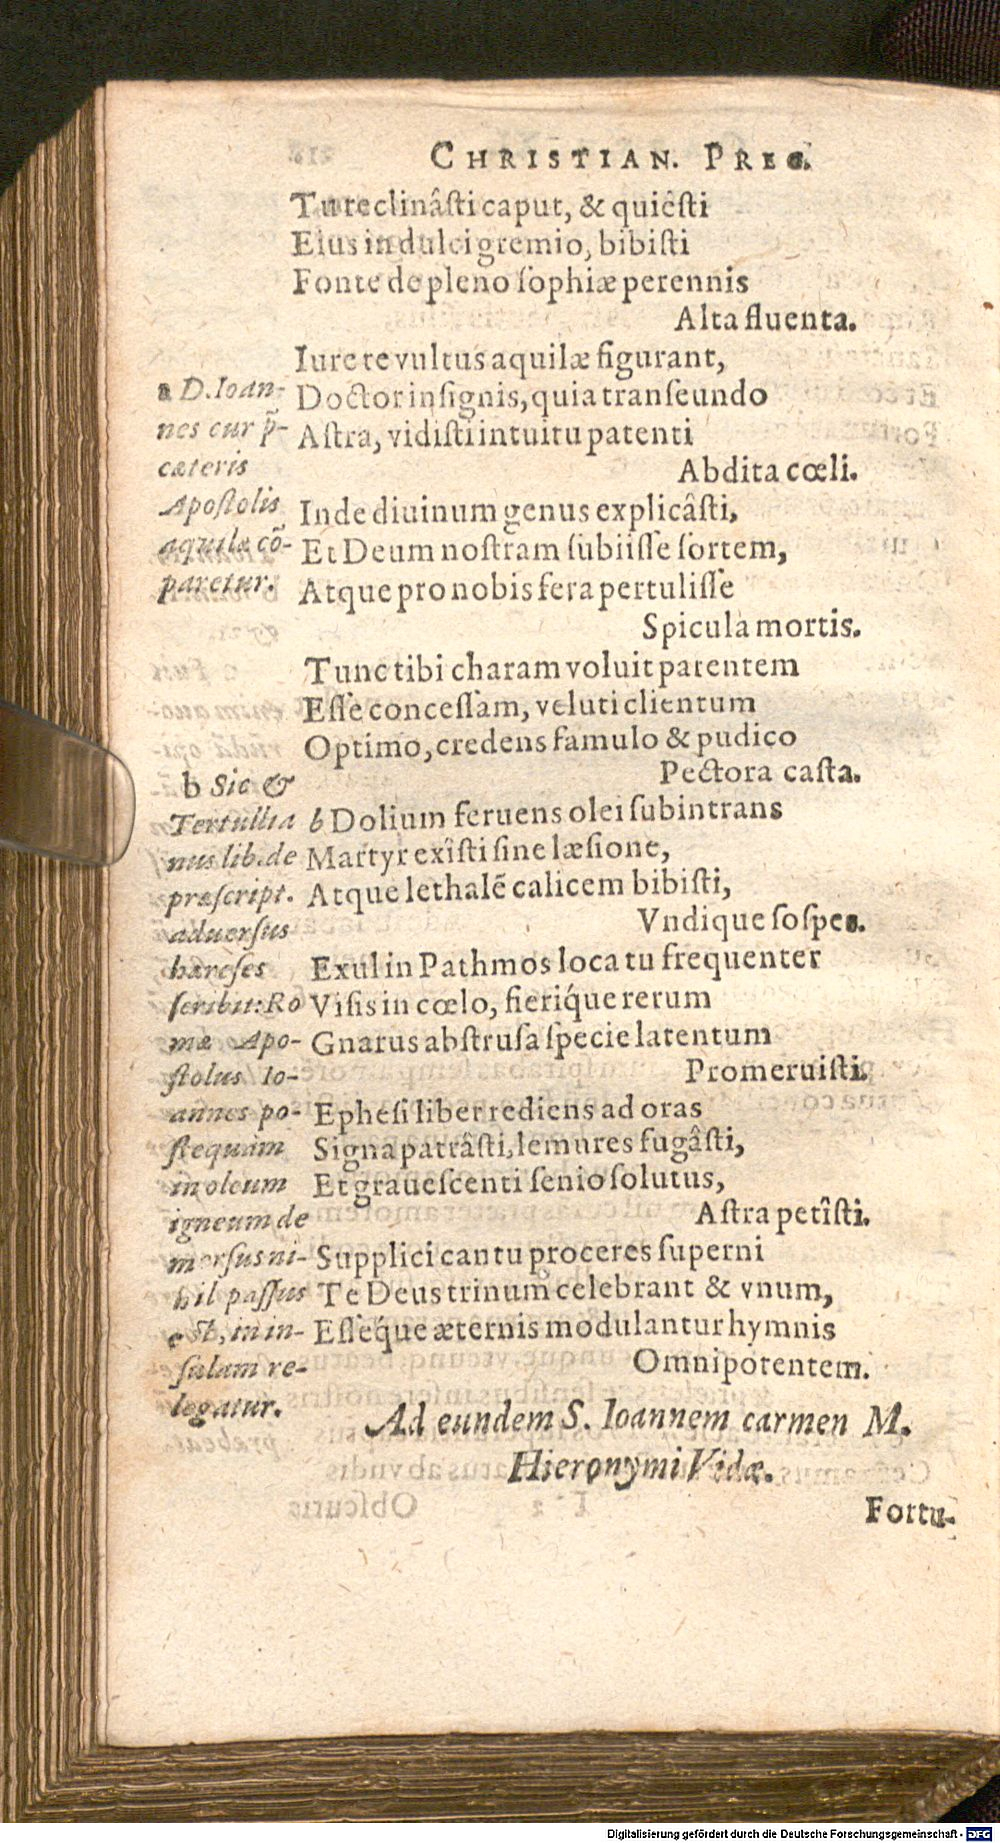 CHRISTIAN. PREC.
Tu reclinâſti caput, & quiêſti
Eius in dulci gremio, bibiſti
Fonte de pleno ſophiæ perennis
Alta fluenta.
Iure te vultus aquilæ figurant,
Doctor inſignis, quia tranſeundo
Aſtra, vidiſti intuitu patenti
Abdita cœli.
Inde diuinum genus explicâſti,
Et Deum noſtram ſubiiſſe ſortem,
Atque pro nobis fera pertuliſſe
Spicula mortis.
Tunc tibi charam voluit parentem
Eſſe conceſſam, veluti clientum
Optimo, credens famulo & pudico
Pectora caſta.
b Dolium feruens olei ſubintrans
Martyr exîſti ſine læſione,
Atque lethalẽ calicem bibiſti,
Vndique ſoſpes.
Exul in Pathmos loca tu frequenter
Viſis in cœlo, fieriq́ue rerum
Gnarus abſtruſa ſpecie latentum
Promeruiſti.
Epheſi liber rediens ad oras
Signa patrâſti, lemures fugâſti,
Et graueſcenti ſenio ſolutus,
Aſtra petîſti.
Supplici cantu proceres ſuperni
Te Deus trinum celebrant & vnum,
Eſſeq́ue æternis modulantur hymnis
Omnipotentem.
a D. Ioan-
nes cur p̃-
cæteris
Apoſtolis
aquilæ cõ-
paretur.
b Sic &
Tertullia
nus lib. de
præſcript.
aduerſus
hæreſes
ſcribit: Ro
mæ Apo-
ſtolus Io-
annes po-
ſtequàm
in oleum
igneum de
merſus ni-
hil paſſus
eſt, in in-
ſulam re-
legatur.
Ad eundem S. Ioannem carmen M.
Hieronymi Vidæ.
Fortu-
Digitalisierung gefördert durch die Deutsche Forschungsgemeinschaft - DFG